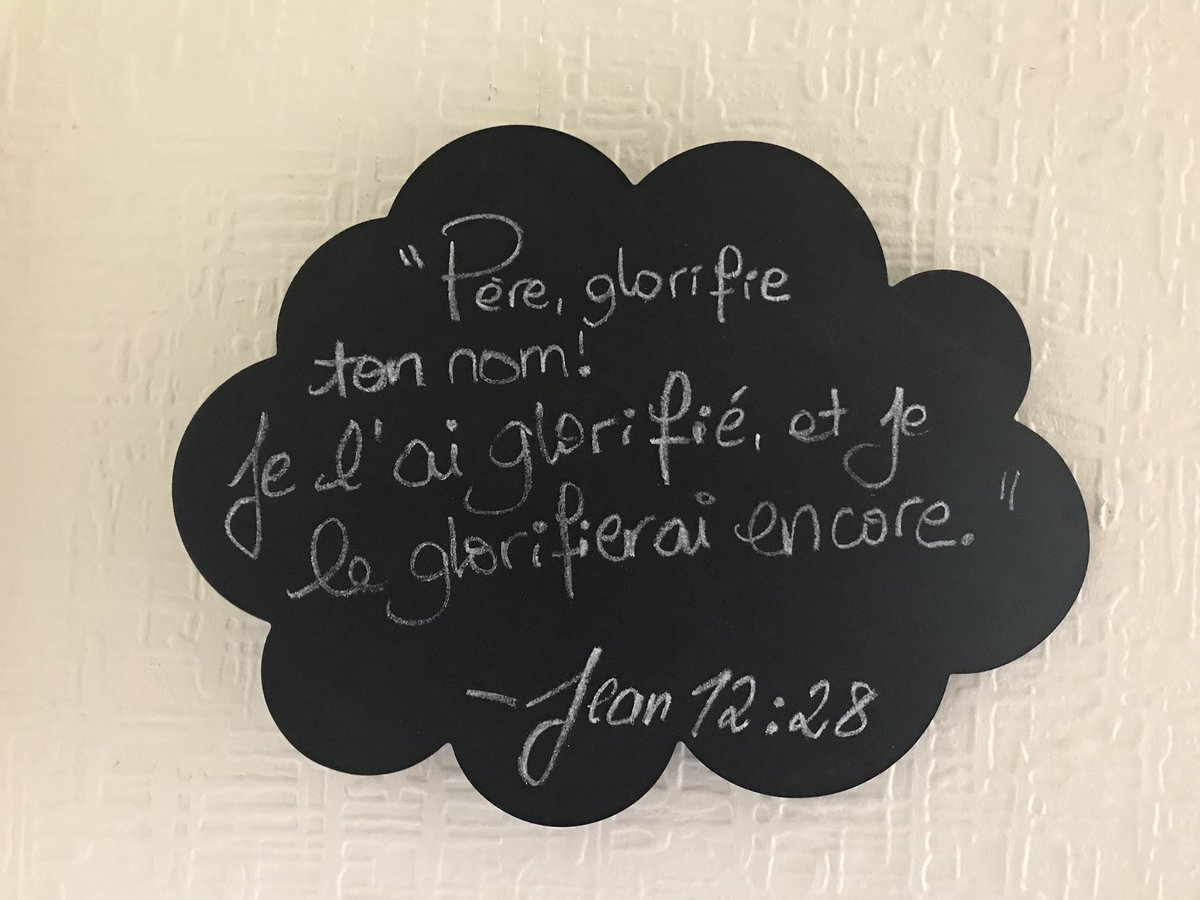 "Père, glorifie
ton nom!
Je l'ai glorifié, et je
le glorifierai encore."
-Jean 12:28